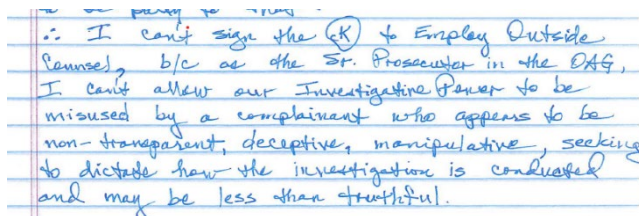 to be party to that
∴ I can't sign the (K) to Employ Outside
Counsel, b/c as the Sr. Prosecutor in the OAG,
I can't allow our Investigative Power to be
misused by a complainant who appears to be
non-transparent, deceptive, manipulative, seeking
to dictate how the investigation is conducted
and may be less than truthful.